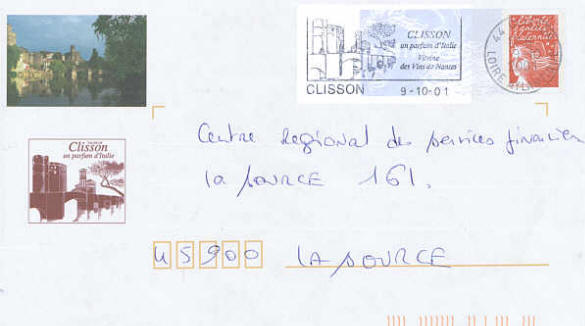 CLISSON
un parfum d'Italie
Vitrine
des Vins de Nantes
CLISSON 9-10-01
44
LOIRE ATL
Clisson
un parfum d'Italie
Centre Régional des services financiers
la source 161.
45900 LA SOURCE